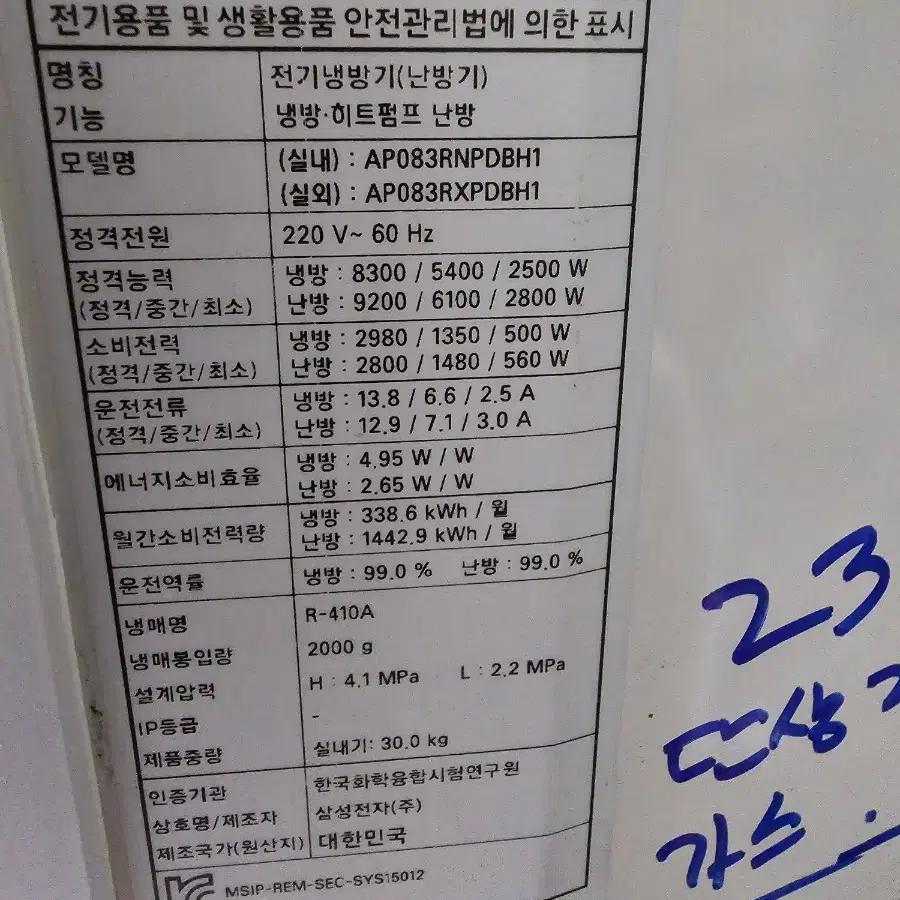 전기용품 및 생활용품 안전관리법에 의한 표시
명칭 전기냉방기(난방기)
기능 냉방·히트펌프 난방
모델명 (실내) : AP083RNPDBH1
(실외) : AP083RXPDBH1
정격전원 220 V~ 60 Hz
정격능력 냉방 : 8300 / 5400 / 2500 W
(정격/중간/최소) 난방 : 9200 / 6100 / 2800 W
소비전력 냉방 : 2980 / 1350 / 500 W
(정격/중간/최소) 난방 : 2800 / 1480 / 560 W
운전전류 냉방 : 13.8 / 6.6 / 2.5 A
(정격/중간/최소) 난방 : 12.9 / 7.1 / 3.0 A
에너지소비효율 냉방 : 4.95 W / W
난방 : 2.65 W / W
월간소비전력량 냉방 : 338.6 kWh / 월
난방 : 1442.9 kWh / 월
운전역률 냉방 : 99.0 % 난방 : 99.0 %
냉매명 R-410A
냉매봉입량 2000 g
설계압력 H : 4.1 MPa L : 2.2 MPa
IP등급 -
제품중량 실내기: 30.0 kg
인증기관 한국화학융합시험연구원
상호명/제조자 삼성전자(주)
제조국가(원산지) 대한민국
MSIP-REM-SEC-SYS15012
23
단상
가스.